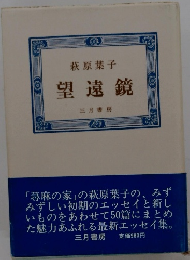 萩原葉子
望遠鏡
三月書房
「蕁麻の家」の萩原葉子の、みず
みずしい初期のエッセイと新し
いものをあわせて50篇にまとめ
た魅力あふれる最新エッセイ集。
三月書房 定価980円